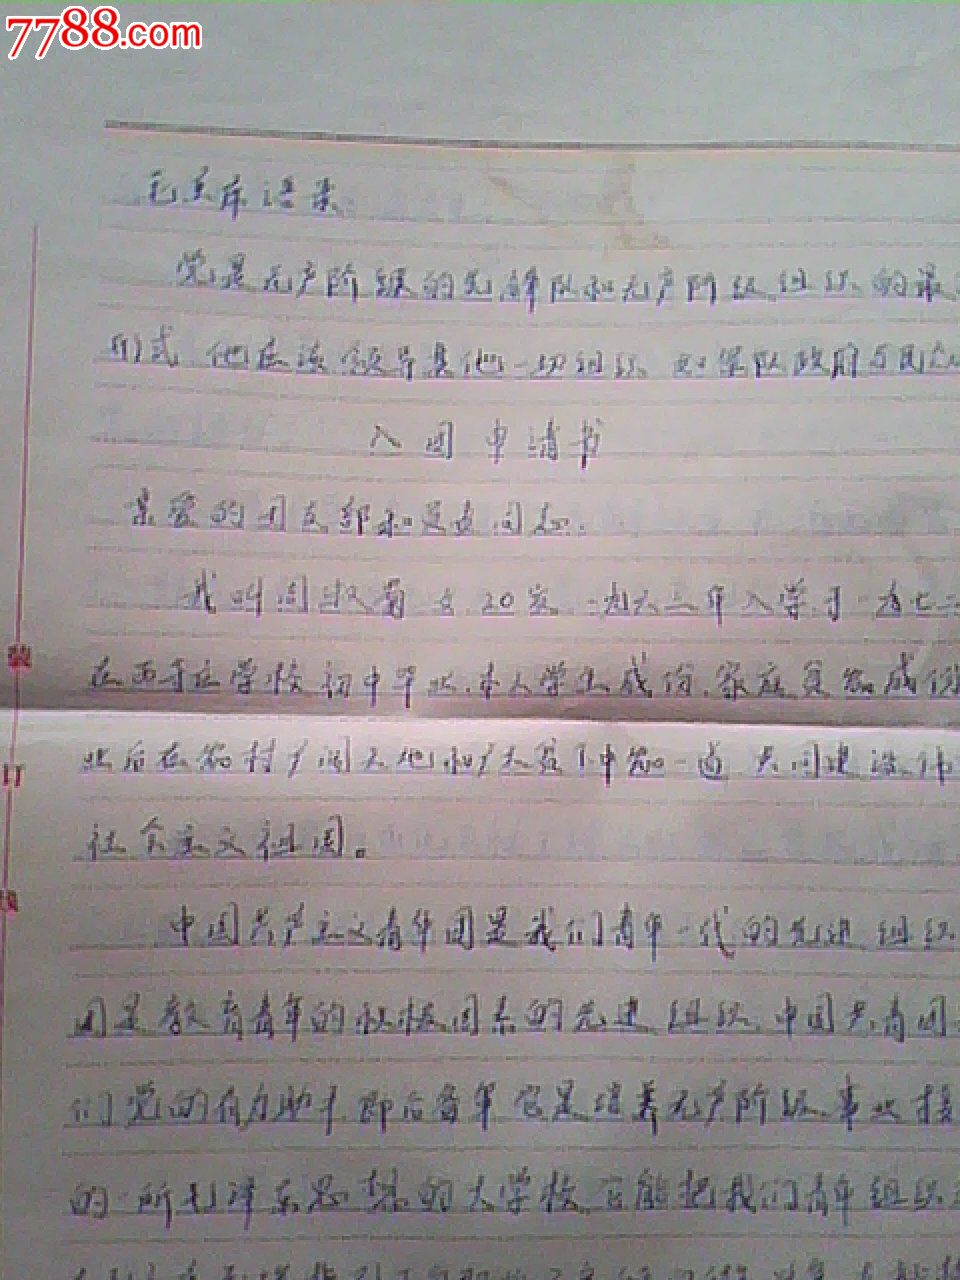 7788.com
毛主席语录
党是无产阶级的先锋队和无产阶级组织的最
形式 他应该领导其他一切组织 如军队政府与民众
入团申请书
亲爱的团支部和是表同志:
我叫周 菊 女 20岁 一九六三年入学于一九七二
在西 学校初中毕业.本人学生成份.家庭贫农成份
业后在农村广阔天地和广大贫下中农一道 共同建设伟
社会主义祖国。
中国共产主义青年团是我们青年一代的先进组织
团是教育青年的积极因素的先进组织.中国共青团
们党的有力助手即后备军 它是培养无产阶级事业接
的一所毛泽东思想的大学校.它能把我们青年组织
装
订
线